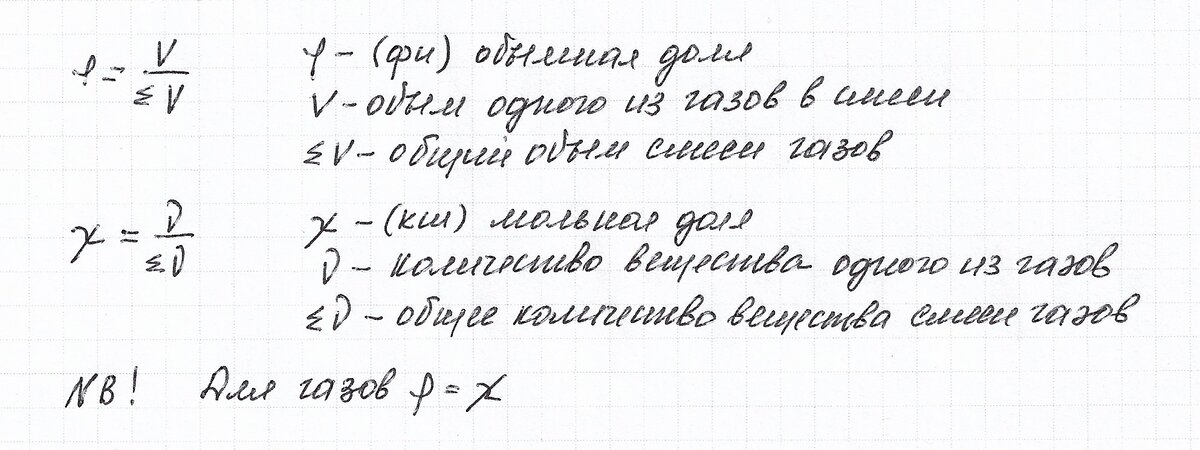 φ = V / ΣV φ – (фи) объемная доля
V – объем одного из газов в смеси
ΣV – общий объем смеси газов
χ = ν / Σν χ – (кси) мольная доля
ν – количество вещества одного из газов
Σν – общее количество вещества смеси газов
NB! Для газов φ = χ